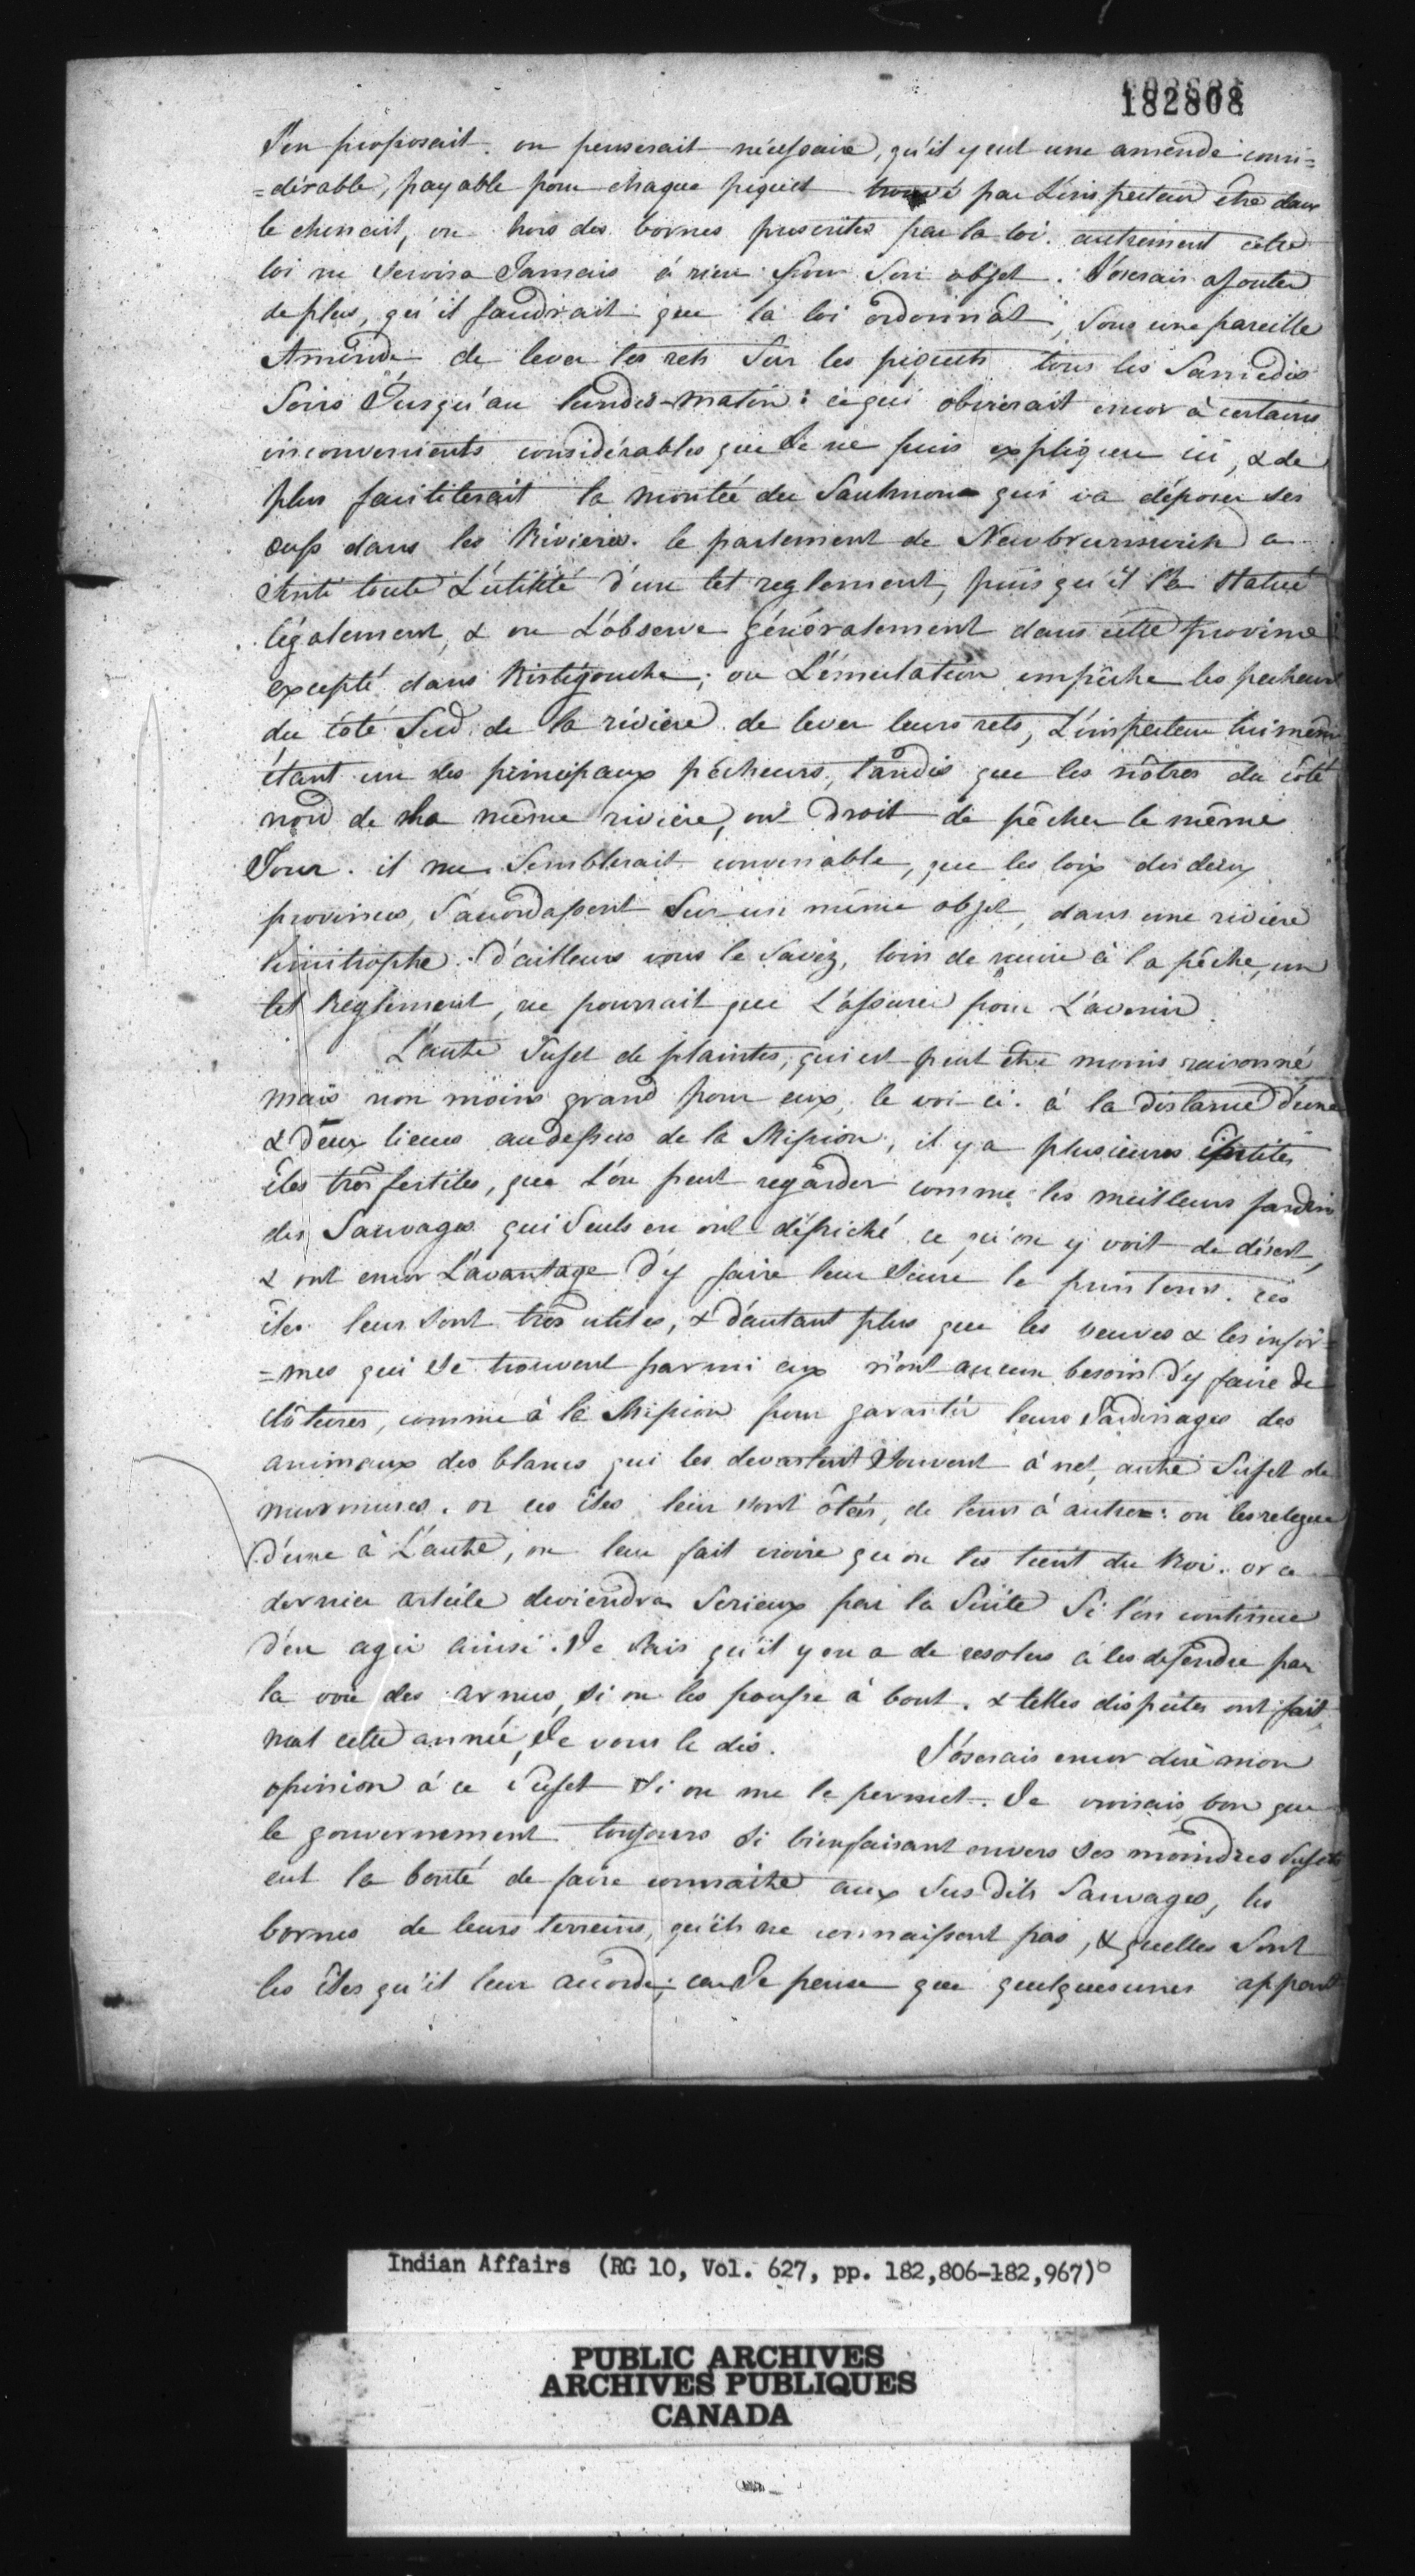 182808
l'on proposait. on penserait nécessaire, qu'il y eut une amende consi=
=dérable, payable pour chaque piquet trouvé par L'inspecteur être dans
le chenail, ou hors des bornes prescrites par la loi. autrement cette
loi ne servira Jamais à rien pour Son objet. J'oserais ajouter
de plus, qu'il faudrait que la loi ordonnât, Sous une pareille
Amende de lever les rets Sur les piquets tous les Samedis
Soirs Jusqu'au lundis-matin: ce qui obvierait encor à certains
inconvenients considérables que Je ne puis expliquer ici, & de
plus faciliterait la montée du Saulmon qui va déposer ses
oeufs dans les Rivieres. le parlement de Newbrunswick a
senti toute L'utilité d'un tel reglement, puis qu'il l'a statué
légalement, & on L'observe généralement dans cette province
excepté dans Ristigouche; ou L'émulation empêche les pecheurs
du côté Sud de la rivière de lever leurs rets, L'inspecteur lui même
étant un des principaux pêcheurs, tandis que les nôtres du côté
nord de la même rivière, ont droit de pêcher le même
Jour. il me Semblerait convenable, que les loix des deux
provinces, S'accordassent Sur un même objet, dans une rivière
limitrophe. d'ailleurs vous le Savez, loin de nuire à la pêche, un
tel Reglement, ne pourrait que L'assurer pour L'avenir.
L'autre Sujet de plaintes, qui est peut être moins raisonné
mais non moins grand pour eux, le voi-ci. à la distance d'une
& deux lieues audessus de la Mission, il y a plusieurs
îles très fertiles, que L'on peut regarder comme les meilleurs jardins
des Sauvages qui Seuls en ont défriché ce qu'on y voit de désert,
& ont encor L'avantage d'y faire leur Sucre le printems. ces
îles leur sont très utiles, & d'autant plus que les veuves & les infir=
=mes qui se trouvent parmi eux n'ont aucun besoin d'y faire de
clôtures, comme à la Mission pour garantir leurs Jardinages des
animaux des blancs qui les devastent Souvent à net, autre Sujet de
murmures. or ces îles leur sont ôtées, de tems à autres: on les relegue
d'une à L'autre, on leur fait croire qu'on les tient du Roi. or ce
dernier article deviendra Serieux par la Suite Si l'on continue
d'en agir ainsi. Je Sais qu'il y en a de resolus à les defendre par
la voie des armes, Si on les pousse à bout. & telles disputes ont fait
mal cette année, Je vous le dis. J'óserais encor dire mon
opinion à ce Sujet Si on me le permet. Je croirais bon que
le gouvernement toujours Si bienfaisant envers ses moindres Sujets
eut la bonté de faire connaitre aux Susdits Sauvages, les
bornes de leurs terreins, qu'ils ne connaissent pas, & quelles Sont
les îles qu'il leur accorde; car Je pense que quelques unes
Indian Affairs (RG 10, Vol. 627, pp. 182,806-182,967)
PUBLIC ARCHIVES
ARCHIVES PUBLIQUES
CANADA